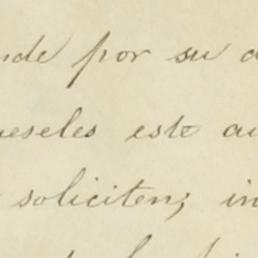 nde por su
ueseles este au
soliciten; in